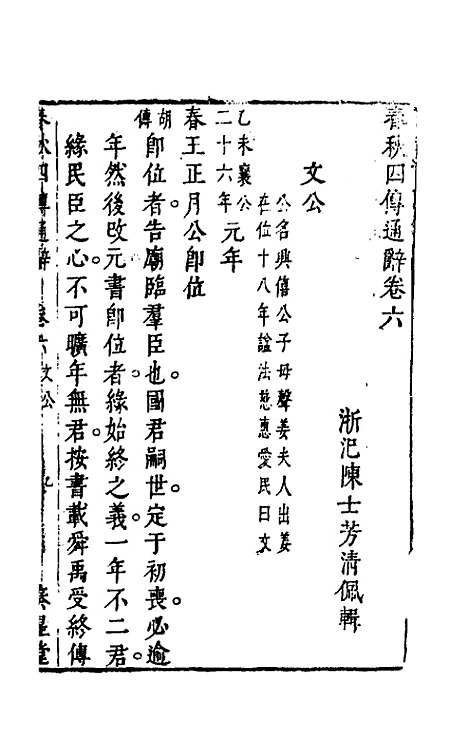 春秋四傳通辭卷六
浙汜陳士芳清佩輯
文公
公名興僖公子母聲姜夫人出姜
在位十八年諡法慈惠愛民曰文
乙未襄公
二十六年元年
春王正月公卽位
胡傳卽位者告廟臨羣臣也國君嗣世定于初喪必逾
年然後改元書卽位者緣始終之義一年不二君
緣民臣之心不可曠年無君按書載舜禹受終傳
春秋四傳通辭 卷六文公